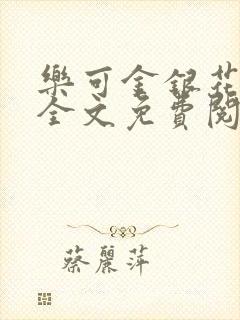 樂可金銀花
全文免費閱
蔡麗萍